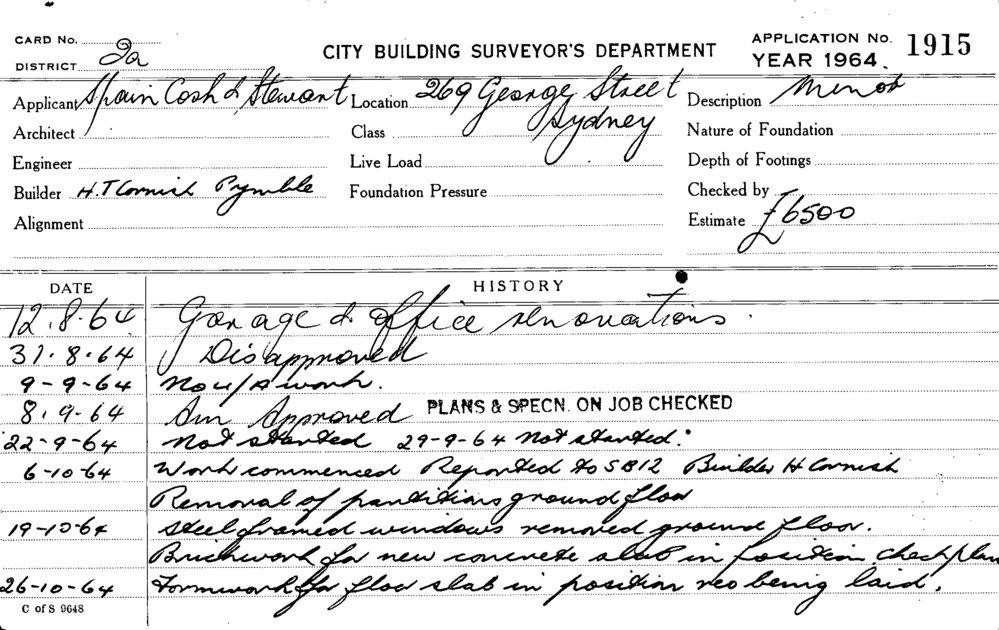 CARD No. 2a
DISTRICT
CITY BUILDING SURVEYOR'S DEPARTMENT
APPLICATION No. 1915
YEAR 1964.
Applicant Spain Cosh & Stewart Location 269 George Street Description Minor
Architect Class Sydney Nature of Foundation
Engineer Live Load Depth of Footings
Builder H. T Cornish Pymble Foundation Pressure Checked by
Alignment Estimate £6500
DATE HISTORY
12.8.64 Garage & office renovations.
31.8.64 Disapproved
9-9-64 No u/a work.
8.9-64 Approved PLANS & SPECN. ON JOB CHECKED
22-9-64 Not started 29-9-64 Not started.
6-10-64 Work commenced Reported to SB12 Builder H Cornish
Removal of partitions ground floor
19-10-64 Steel framed windows removed ground floor.
Brickwork for new concrete slab in position check plan
26-10-64 Formwork for floor slab in position reo being laid.
C of S 9648